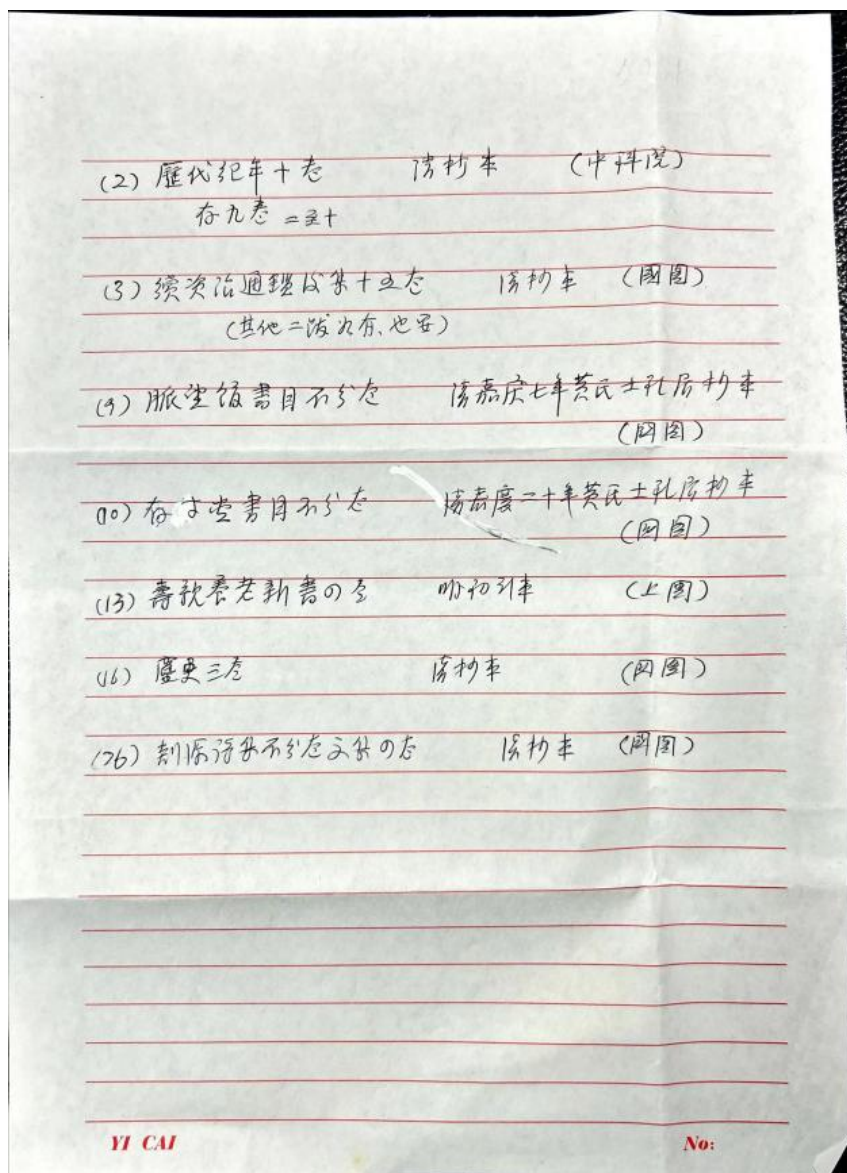 (2) 歷代紀年十卷 清抄本 (中科院)
存九卷 二至十
(3) 續資治通鑑後集十五卷 清抄本 (國图)
(其他二跋如存、也要)
(9) 脈望館書目不分卷 清嘉庆七年黄氏士礼居抄本
(国图)
(10) 存 堂書目不分卷 清嘉慶二十年黄氏士礼居抄本
(国图)
(13) 壽親養老新書四卷 明初刻本 (上图)
(16) 麈史三卷 清抄本 (国图)
(26) 剡源詩集不分卷文集四卷 清抄本 (国图)
YI CAI No: